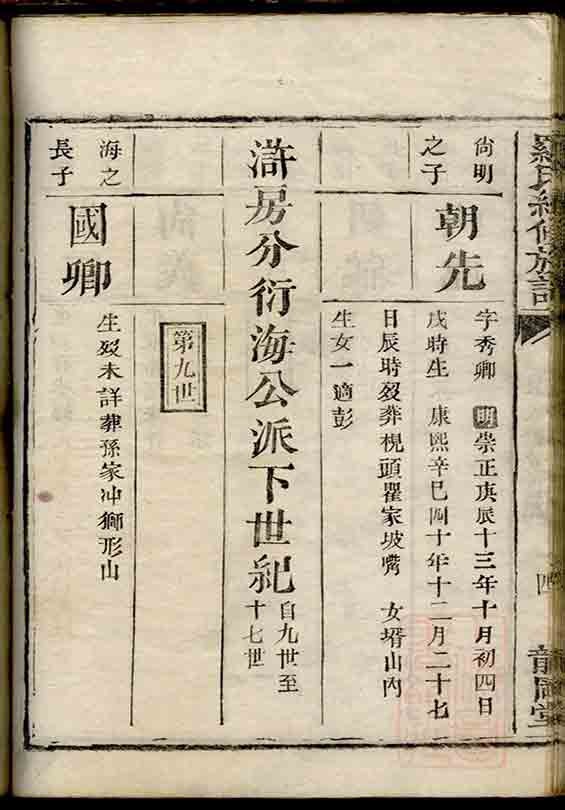 羅氏續修族譜
四
龍岡堂
尙明
之子
朝先
字秀卿 明崇正庚辰十三年十月初四日
戌時生 康熙辛巳四十年十二月二十七
日辰時歿葬枧頭瞿家坡嘴 女壻山內
生女一適彭
滸房分衍海公派下世紀
自九世至
十七世
第九世
海之
長子
國卿
生歿未詳葬孫家冲獅形山